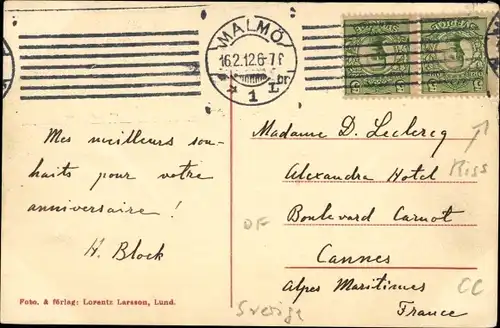 MALMÖ
16.2.12.6-7 F
* 1 L br
Mes meilleurs sou-
haits pour votre
anniversaire !
H. Block
Madame D. Leclercq
Alexandra Hotel
Boulevard Carnot
Cannes
Alpes Maritimes
France
Kiss
DF
CC
Sverige
Foto. & förlag: Lorentz Larsson, Lund.